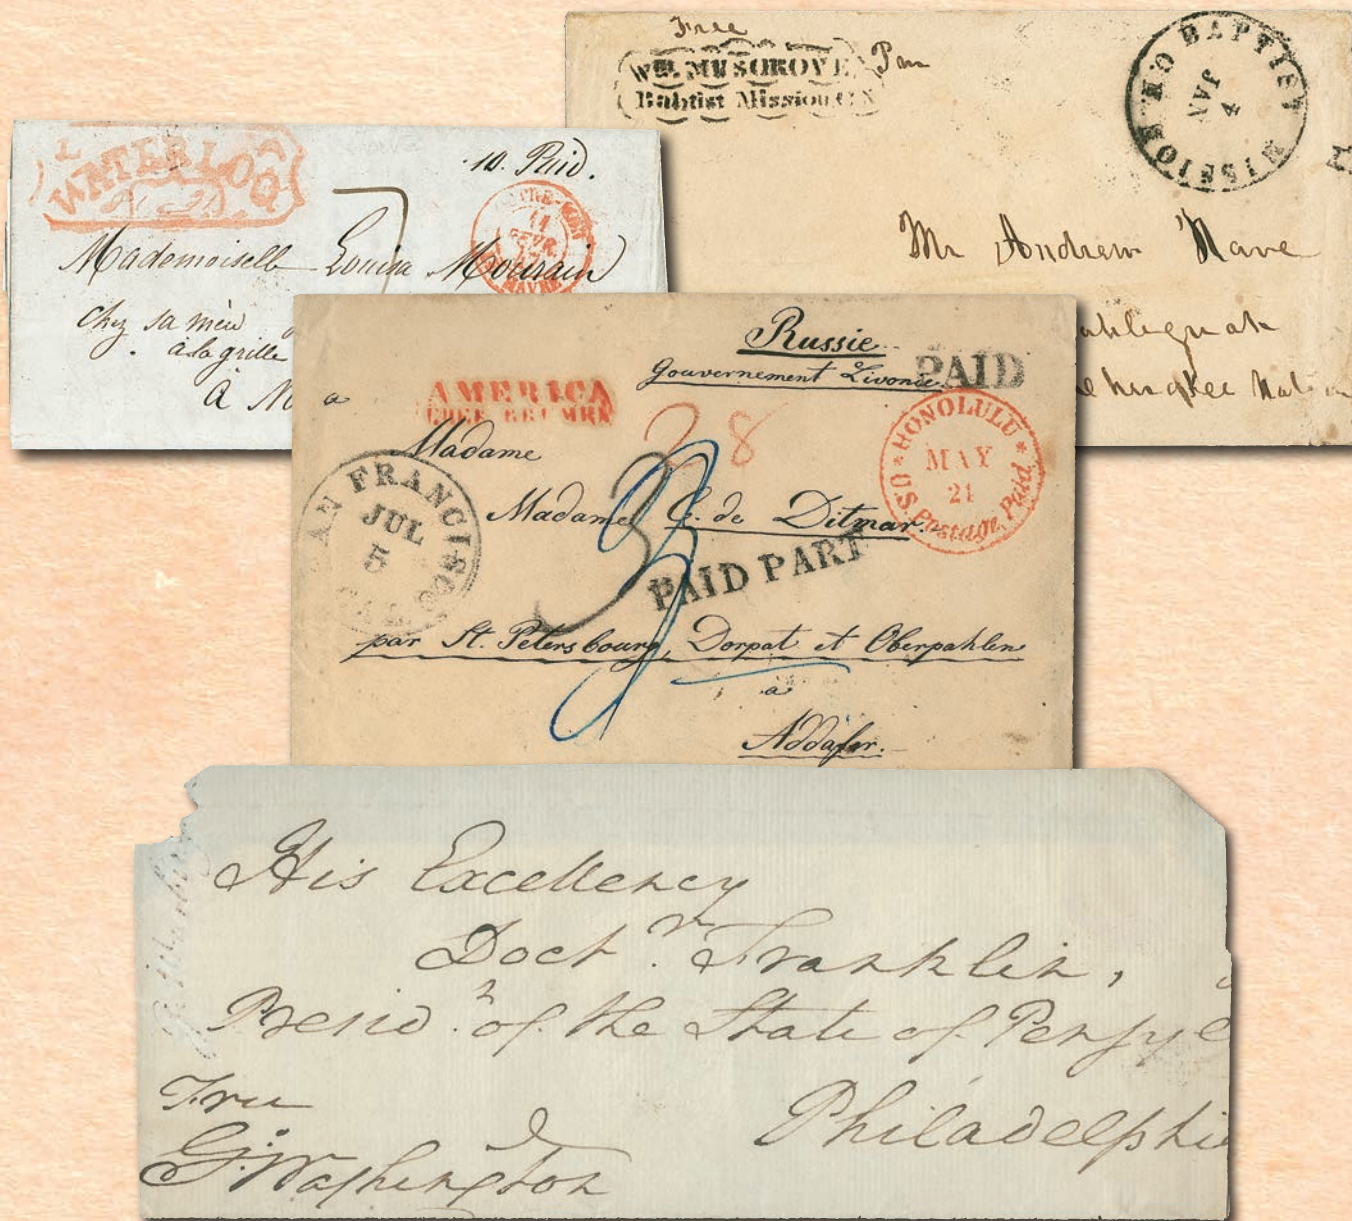 Free
Wm. MUSGROVE Pm
Baptist Mission C.N.
BAPTIST MISSION C.N.
JAN
4
Mr Andrew Nave
ahlequah
Cherokee Nation
WATERLOO
10. Paid.
11
FEVR.
HAVRE
7
Mademoiselle Louisa
chez sa mère
à la grille
à
Russie
Gouvernement Livonie
PAID
AMERICA
UEBER BREMEN
a
Madame
38
HONOLULU
MAY
21
U.S. Postage Paid
SAN FRANCISCO
JUL
5
CAL.
Madame C. de Ditmar.
3
PAID PART
par St. Petersbourg, Dorpat et Oberpahlen
a
Addafer.
His Excellency
Doctr. Franklin,
Presidt. of the State of Pensyl
Philadelphi
Free
G. Washington